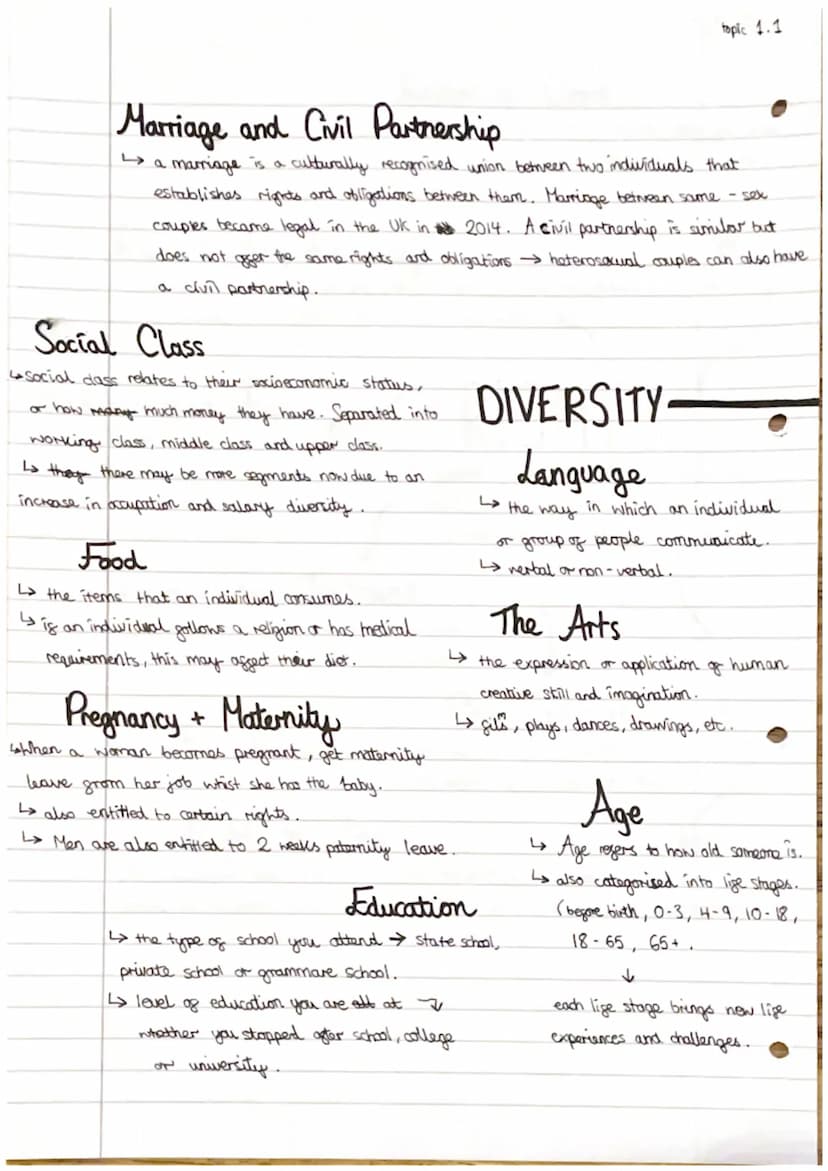 topic 1.1
Marriage and Civil Partnership
↳ a marriage is a culturally recognised union between two individuals that
establishes rights and obligations between them. Marriage between same - sex
couples became legal in the UK in 2014. A civil partnership is similar but
does not offer the same rights and obligations → heterosexual couples can also have
a civil partnership.
Social Class
↳ social class relates to their socioeconomic status,
or how many much money they have. Separated into
working class, middle class and upper class.
↳ they there may be more segments now due to an
increase in occupation and salary diversity.
Food
↳ the items that an individual consumes.
↳ if an individual follows a religion or has medical
requirements, this may affect their diet.
Pregnancy + Maternity
↳ When a woman becomes pregnant, get maternity
leave from her job whist she has the baby.
↳ also entitled to certain rights.
↳ Men are also entitled to 2 weeks paternity leave.
Education
↳ the type of school you attend → state school,
private school or grammare school.
↳ level of education you are at
whether you stopped after school, college
or university.
DIVERSITY
Language
↳ the way in which an individual
or group of people communicate.
↳ verbal or non-verbal.
The Arts
↳ the expression or application of human
creative skill and imagination.
↳ films, plays, dances, drawings, etc.
Age
↳ Age refers to how old someone is.
↳ also categorised into life stages.
(before birth, 0-3, 4-9, 10-18,
18-65, 65+.
↓
each life stage brings new life
experiences and challenges.